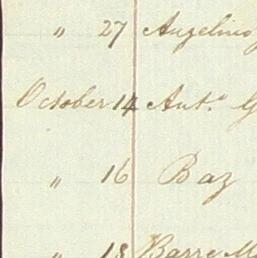 " 27 Angelino
October 14 Ant.º G
" 16 Baz
" 18 Barre M